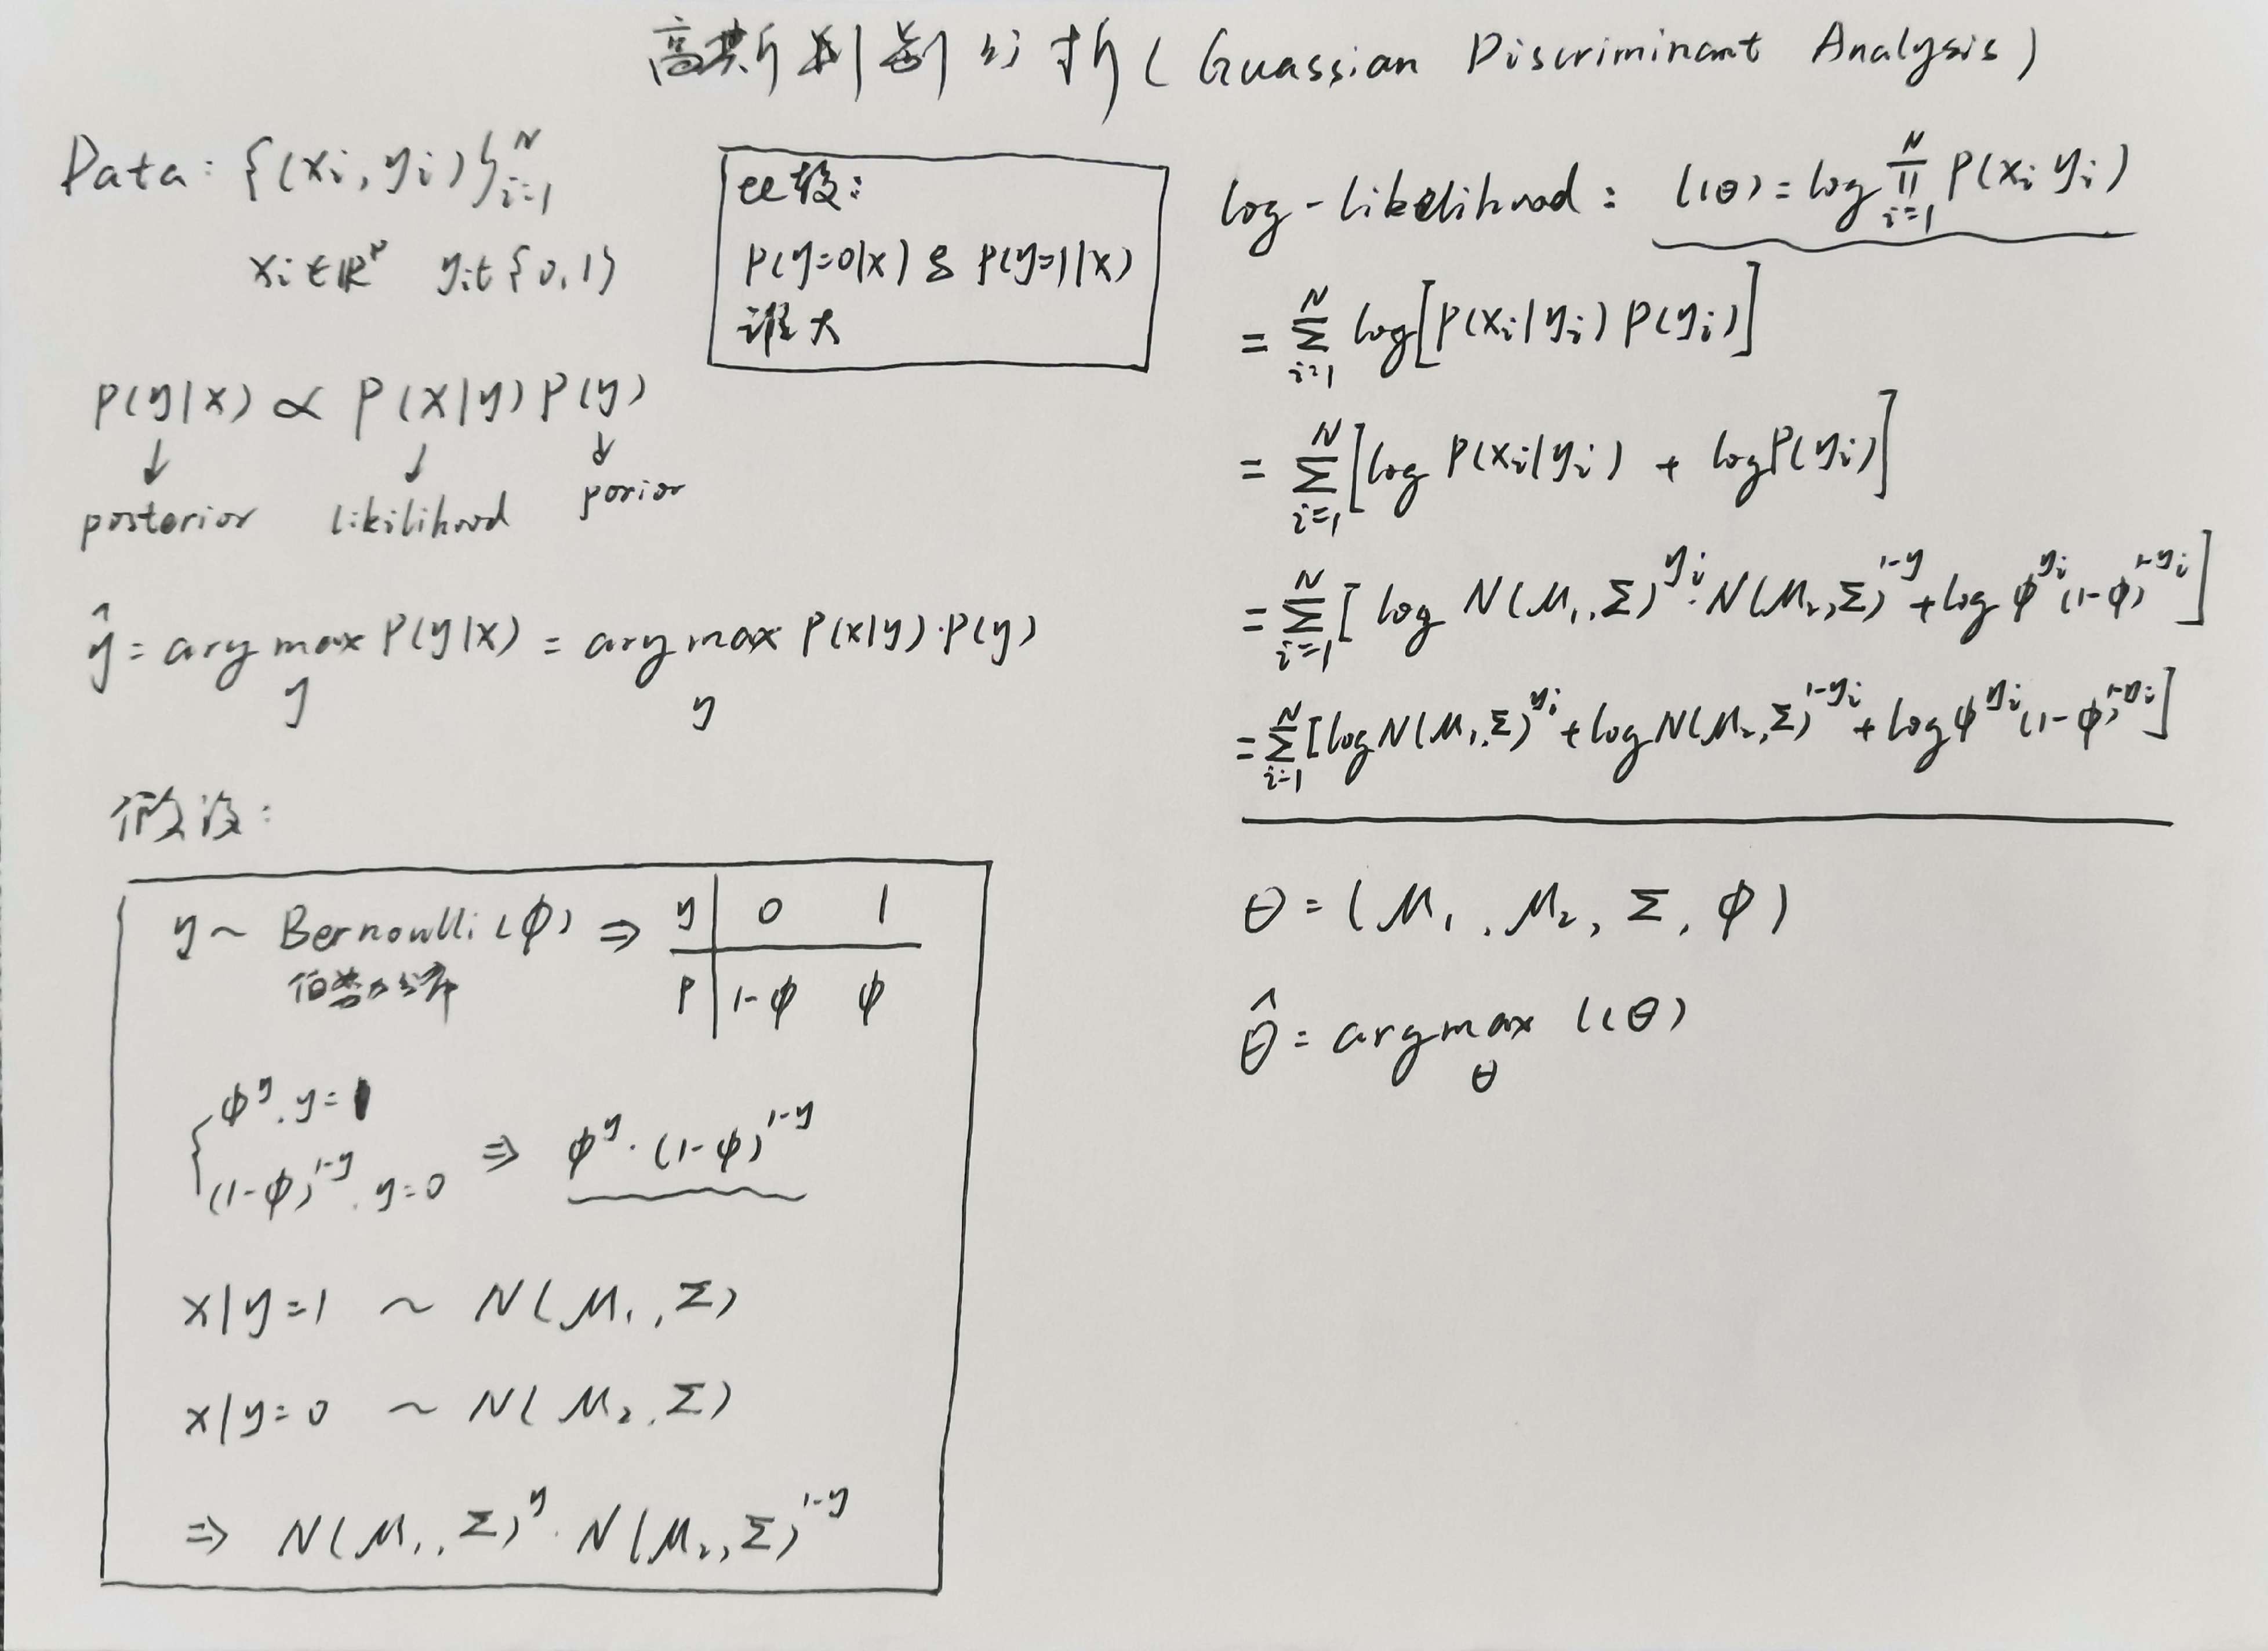 高斯判别分析(Guassian Discriminant Analysis)
Data: {(xi, yi)}_{i=1}^{N}
xi∈ℝ^p yi∈{0,1}
比较:
P(y=0|x) & P(y=1|x)
谁大
P(y|x) ∝ P(x|y) P(y)
↓ ↓ ↓
posterior likilihood porior
ŷ = arg max_y P(y|x) = arg max_y P(x|y)·P(y)
假设:
y ~ Bernoulli(φ) ⇒ y | 0 1
伯努力分布 P | 1-φ φ
{ φ^y, y=1
(1-φ)^{1-y}, y=0 ⇒ φ^y·(1-φ)^{1-y}
x|y=1 ~ N(μ₁, Σ)
x|y=0 ~ N(μ₂, Σ)
⇒ N(μ₁, Σ)^y · N(μ₂, Σ)^{1-y}
log-likelihood: l(θ) = log ∏_{i=1}^{N} P(xi yi)
= Σ_{i=1}^{N} log[P(xi|yi) P(yi)]
= Σ_{i=1}^{N} [log P(xi|yi) + log P(yi)]
= Σ_{i=1}^{N} [log N(μ₁, Σ)^{yi}·N(μ₂, Σ)^{1-y} + log φ^{yi}(1-φ)^{1-yi}]
= Σ_{i=1}^{N} [log N(μ₁, Σ)^{yi} + log N(μ₂, Σ)^{1-yi} + log φ^{yi}(1-φ)^{1-yi}]
θ = (μ₁, μ₂, Σ, φ)
θ̂ = arg max_θ l(θ)